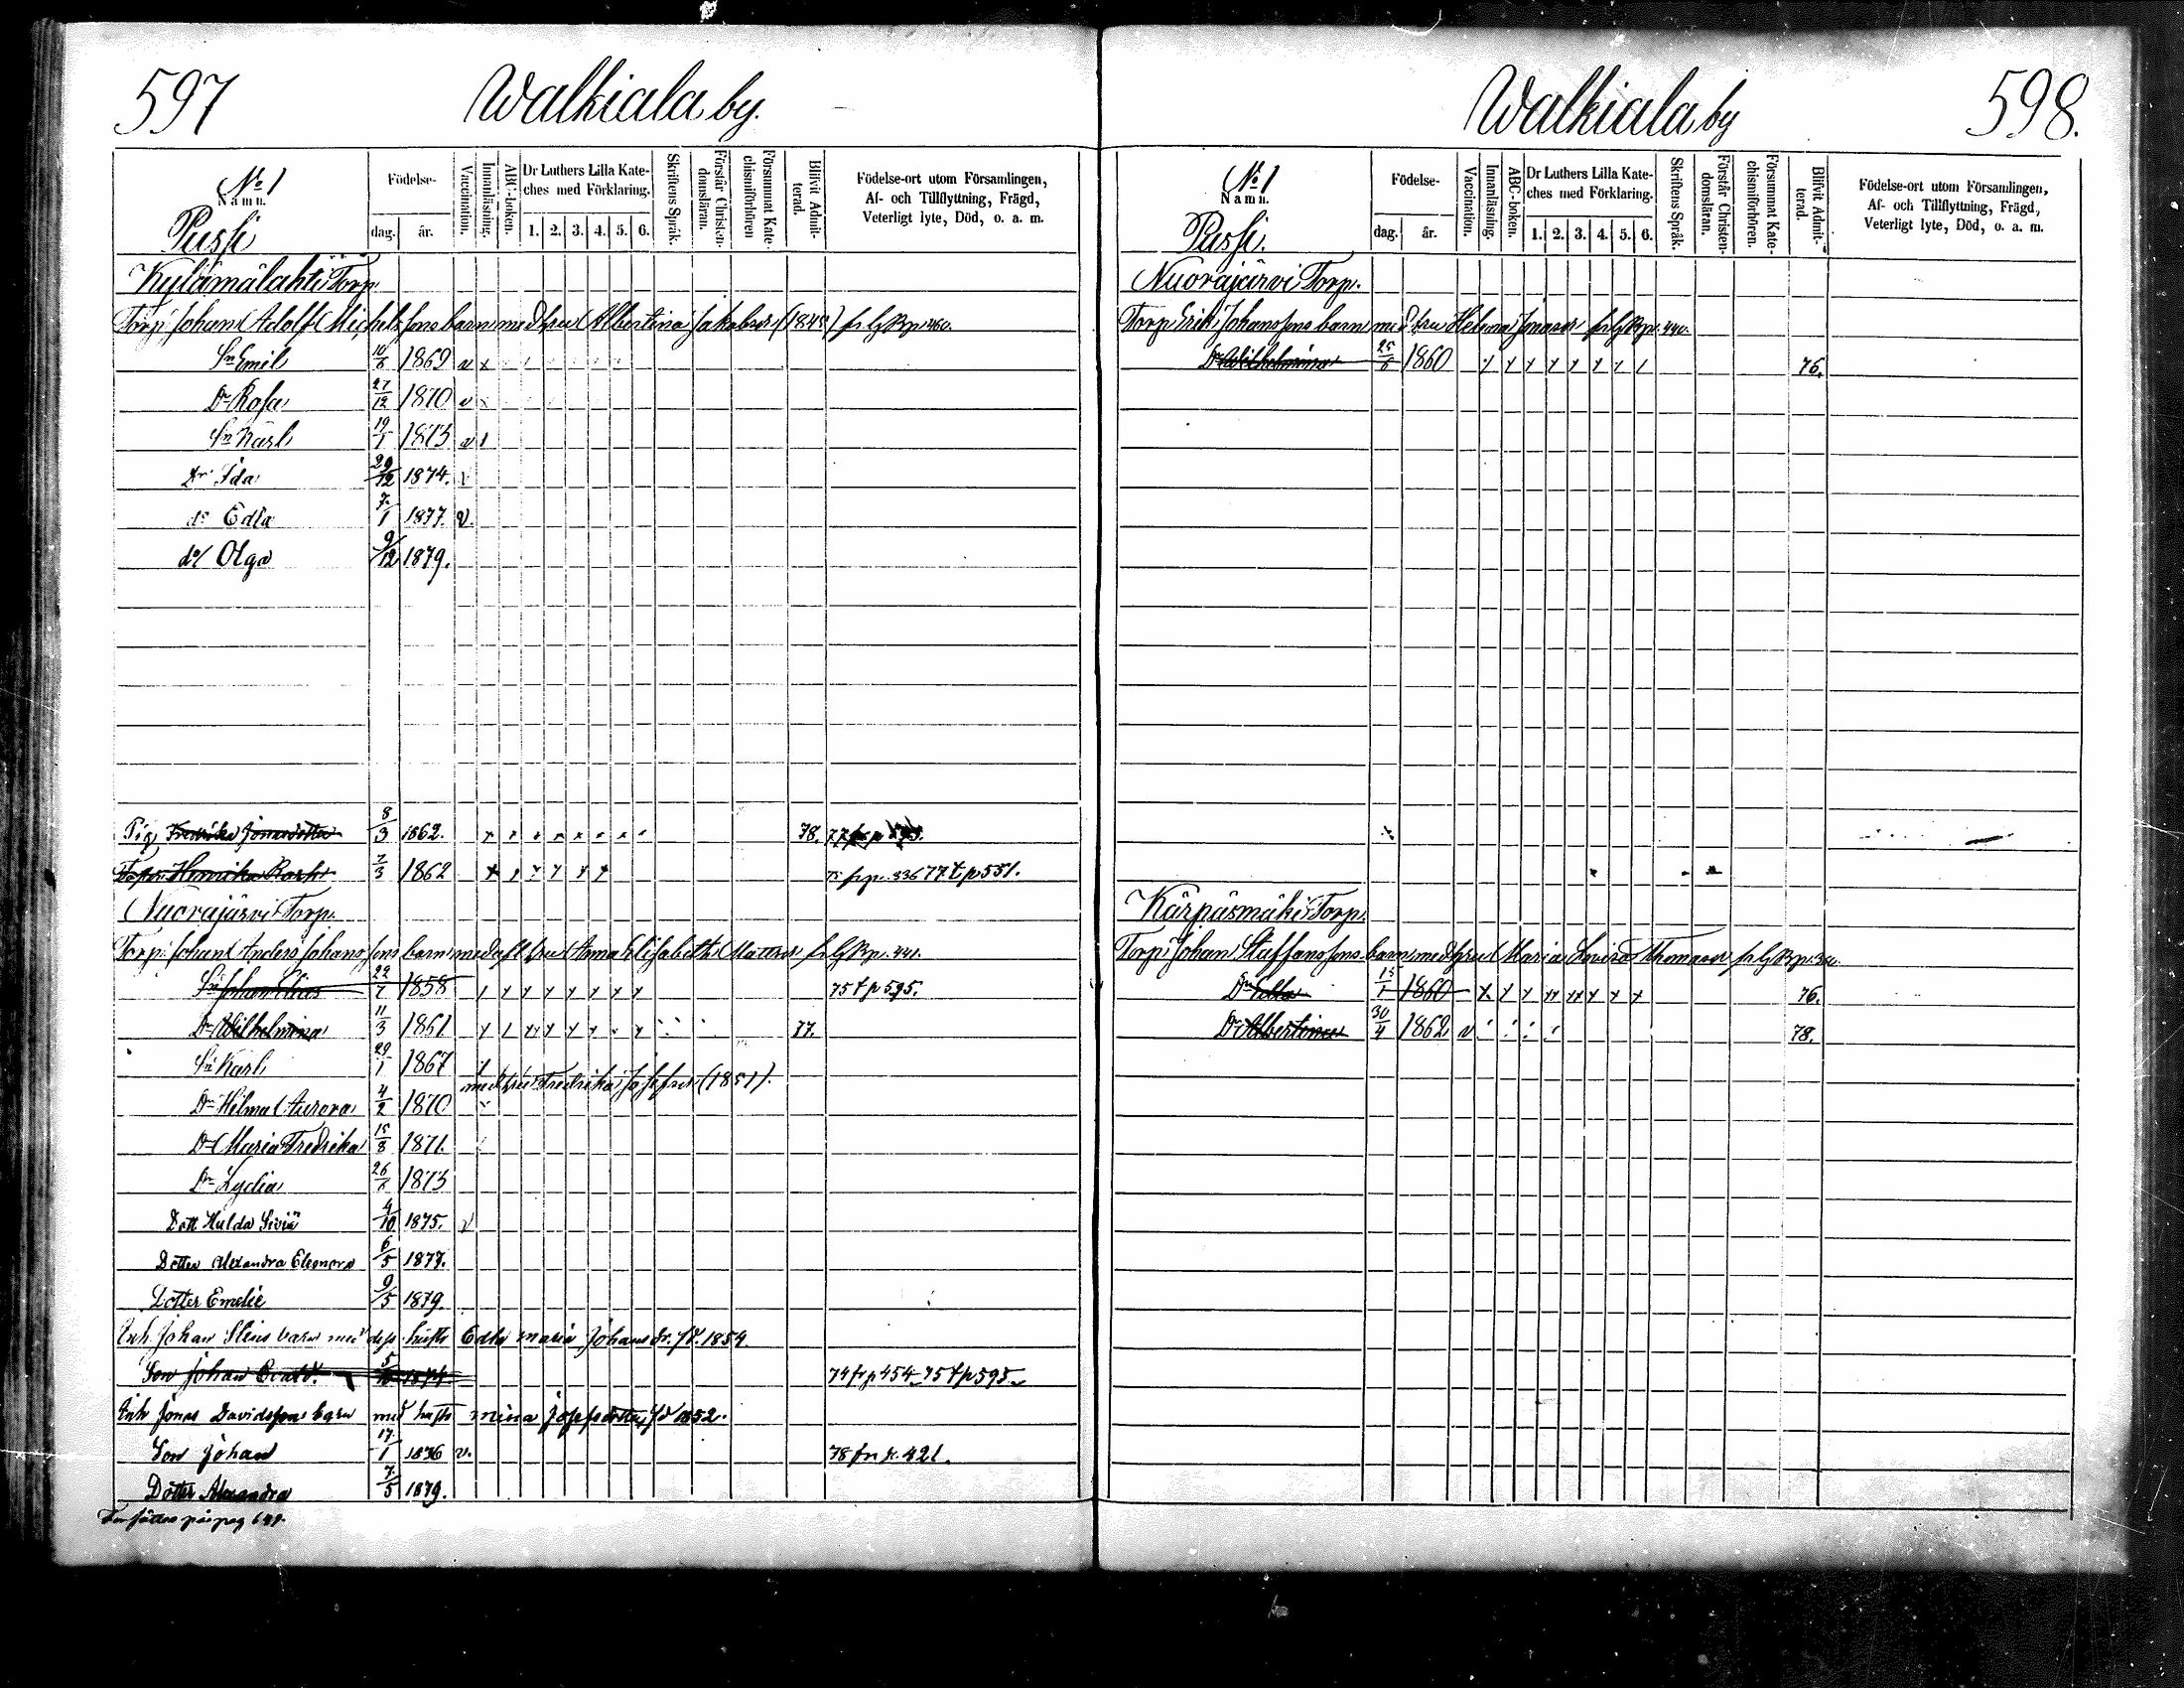 597
Walkiala by.
No 1
Namn.
Pussi
Födelse-
dag.
år.
Vaccination.
Innanläsning.
ABC-boken.
Dr Luthers Lilla Kate-
ches med Förklaring.
1. 2. 3. 4. 5. 6.
Skriftens Språk.
Förstår Christen-
domsläran.
Försummat Kate-
chismiförhören
Blifvit Admit-
terad.
Födelse-ort utom Församlingen,
Af- och Tillflyttning, Frägd,
Veterligt lyte, Död, o. a. m.
Torp.
Torp. Johan Adolf Michelssons barn med hru Albertina Jakobsdr
Sn Emil 1869 v x
Dr Rosa 27/12 1870 v
Sn Karl 19/1 1873 v
Dr Ida 29/12 1874. v
do Edla 7/1 1877. v.
do/ Olga 9/12 1879.
Pig. Fredrika Jonasdotter 8/3 1862. x x x x x x x x 78.
Henrika 7/3 1862 x x x x x x 77 t p 551.
Nuorajärvi Torp.
Torp. Johan Anders Johanssons barn med afl. hru Anna Elisabeth Mattsdr
Sn Johan Elias 22/7 1858 75 t p 595.
Dr Wilhelmina 11/3 1861 77.
Sn Karl 29/1 1867
med hru Fredrika Josefsdr (1851).
Dr Hilma Aurora 4/2 1870
Dr Maria Fredrika 15/8 1871.
Dr Lydia 1873
Dott Hulda Siviä 4/10 1875. v
Dotter Alexandra Eleonora 6/5 1877.
Dotter Emelie 9/5 1879.
Inh. Johan Elias barn med dess hustr Edla Maria Johansdr. fd. 1854.
Son Johan 74 fr p 454 75 t p 595
Inh Jonas Davidssons barn med hustr Mina Josefsdotter fd 1852.
Son Johan 17/1 1876 v. 78 fr p. 421.
Dotter Alexandra 7/5 1879.
på pag
Walkiala by
598.
No 1
Namn.
Pussi.
Födelse-
dag.
år.
Vaccination.
Innanläsning.
ABC-boken.
Dr Luthers Lilla Kate-
ches med Förklaring.
1. 2. 3. 4. 5. 6.
Skriftens Språk.
Förstår Christen-
domsläran.
Försummat Kate-
chismiförhören.
Blifvit Admit-
terad.
Födelse-ort utom Församlingen,
Af- och Tillflyttning, Frägd,
Veterligt lyte, Död, o. a. m.
Nuorajärvi Torp.
Torp. Erik Johanssons barn med hru Helena Jonasdr
Dr Wilhelmina 1860 76.
Kärpäsmäki Torp.
Torp. Johan Staffanssons barn med hru Maria Lovisa Thomasdr
Dr 15/1 1860 76.
Dr Albertina 30/4 1862 v 78.